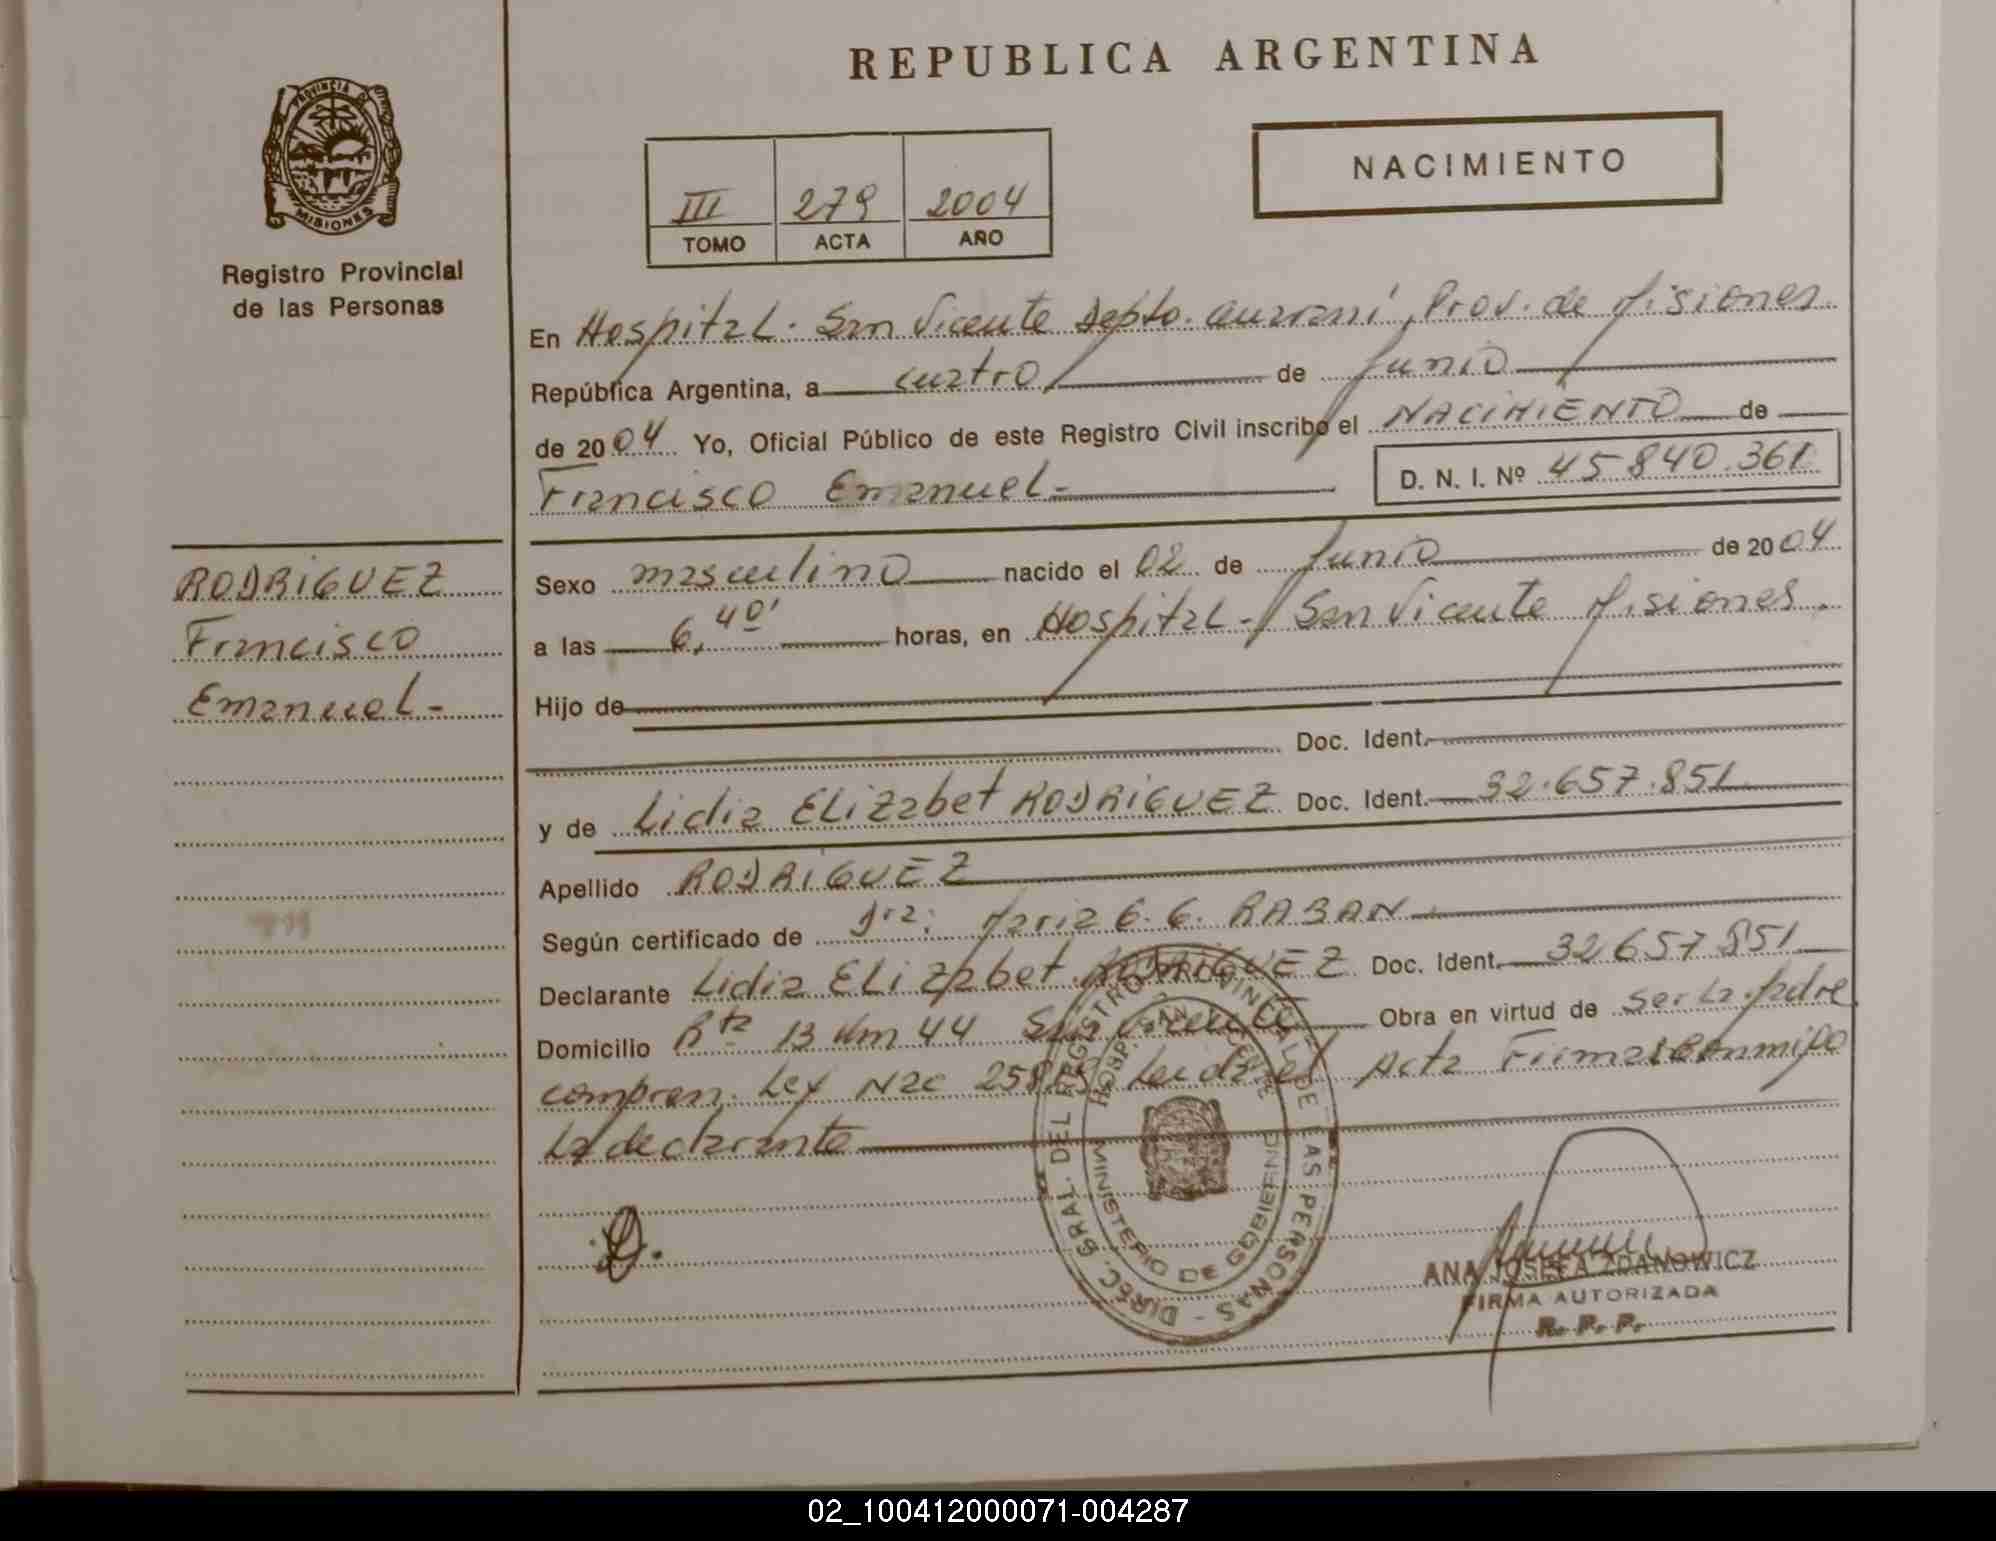 REPUBLICA ARGENTINA
PROVINCIA DE
MISIONES
Registro Provincial
de las Personas
NACIMIENTO
III 279 2004
TOMO ACTA AÑO
En Hospital. San Vicente Depto. Guarani, Prov. de Misiones
República Argentina, a cuatro de Junio
de 2004 Yo, Oficial Público de este Registro Civil inscribo el NACIMIENTO de
Francisco Emanuel-
D. N. I. Nº 45.840.361
RODRIGUEZ
Francisco
Emanuel-
Sexo masculino nacido el 02 de Junio de 2004
a las 6,40' horas, en Hospital - San Vicente Misiones.
Hijo de
Doc. Ident.
y de Lidia ELizabet RODRIGUEZ Doc. Ident. 32.657.851
Apellido RODRIGUEZ
Según certificado de Dra: Maria G. G. RABAN
Declarante Lidia ELizabet RODRIGUEZ Doc. Ident. 32657851
Domicilio Rta 13 Km 44 San Vicente Obra en virtud de ser La Madre
compren. Ley Nac Leida el Acta Firma conmigo
La declarante
DIREC. GRAL. DEL REGISTRO PROVINCIAL DE LAS PERSONAS -
HOSP. SAN VICENTE
MINISTERIO DE GOBIERNO
ANA JOSEFA ZDANOWICZ
FIRMA AUTORIZADA
R. P. P.
02_100412000071-004287